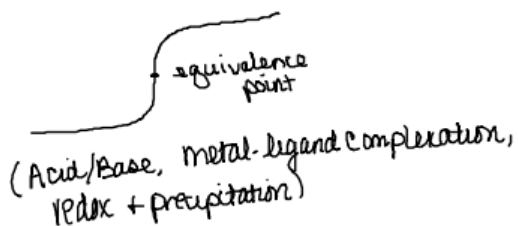 equivalence
point
(Acid/Base, metal-ligand complexation,
redox + precipitation)